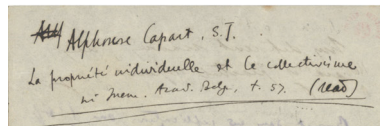 Alphonse Capart, S.J.
La propriété individuelle et le collectivisme
in Mem. Acad. Belge, t. 57. (read)